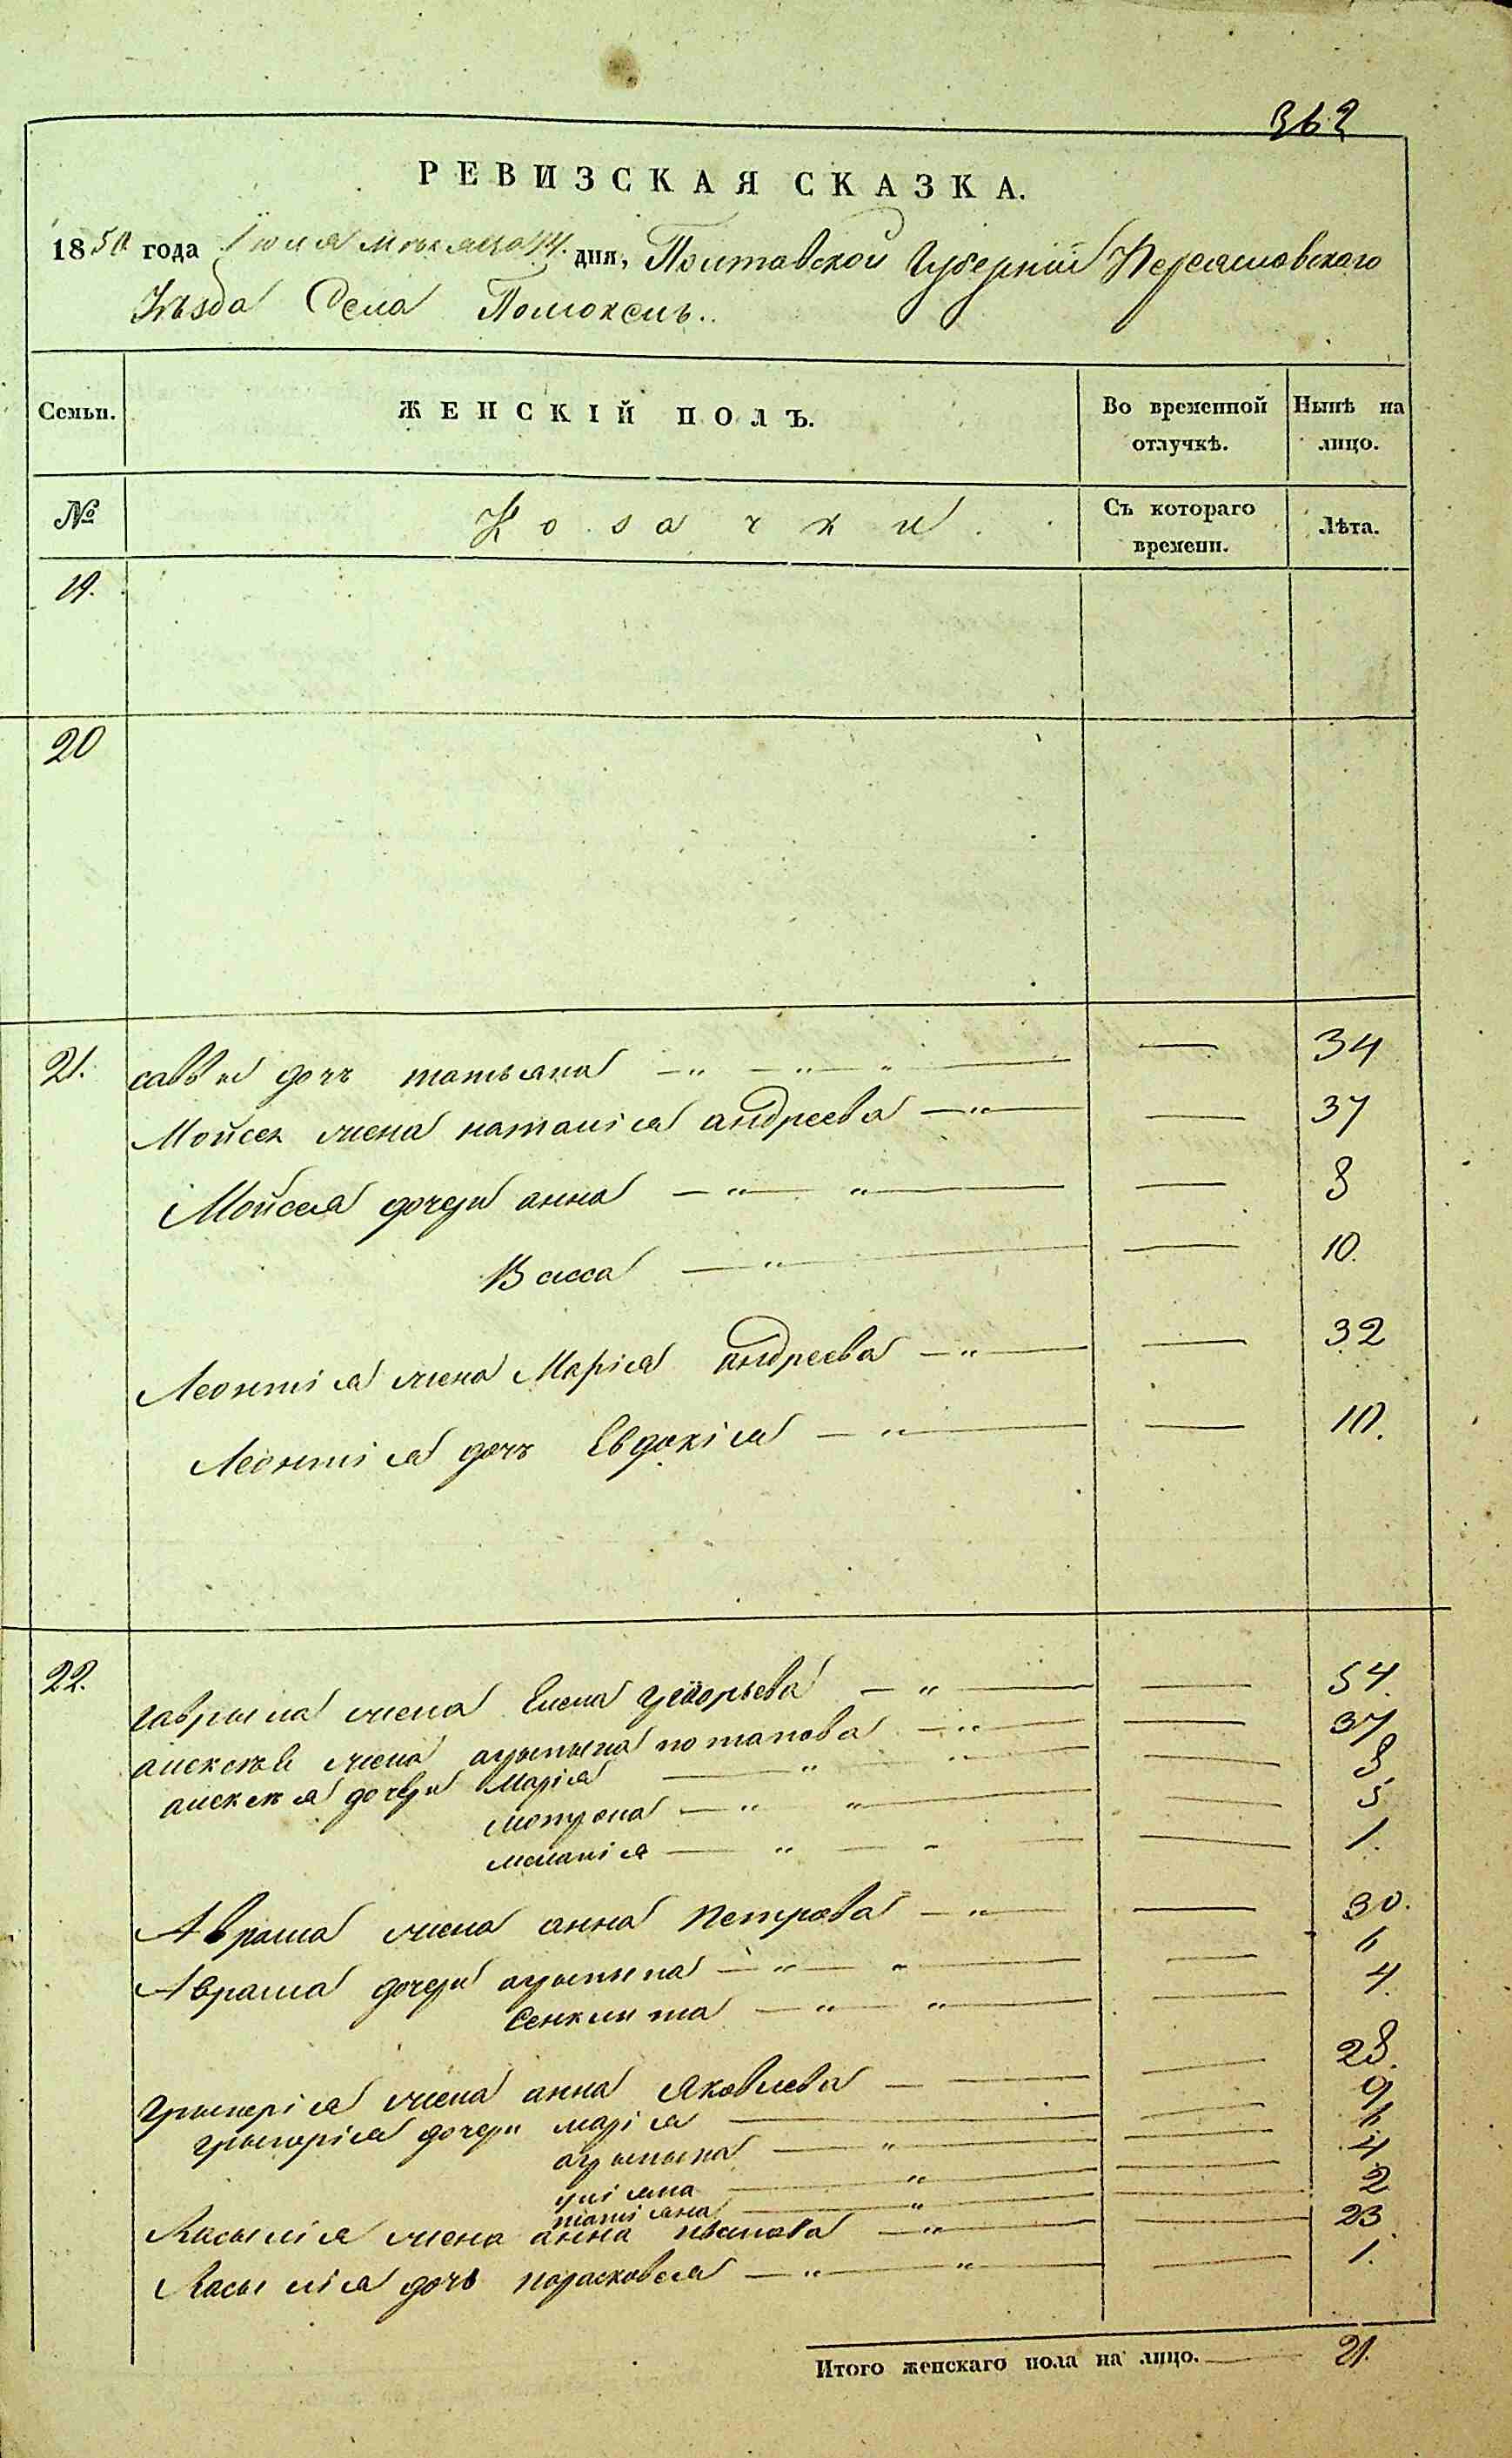 362
РЕВИЗСКАЯ СКАЗКА.
1850 года Іюля мѣсяца 14. дня, Полтавской Губерніи Переяславского
Уѣзда Села Помоклъ..
Семьи. ЖЕНСКІЙ ПОЛЪ. Во временной отлучкѣ. Нынѣ на лицо.
№ Козачки. Съ котораго времени. Лѣта.
19.
20
21. саввы дочь татьяна — 34
Мойсея жена наталія андреева — 37
Мойсея дочери анна — 8
Васса — 10.
Леонтія жена Марія андреева — 32
Леонтія дочь Евдокія — 10.
22. гаврыла жена Елена Григорьева — 54.
алексѣя жена агрыпына потапова — 37
алексѣя дочери Марія — 8
мотрона — 5
меланія — 1.
Аврама жена анна Петрова — 30.
Аврама дочери агрыпына — 6
Сенклита — 4.
Грыгорія жена анна Яковлева — 28.
грыгорія дочери марія — 9
агрыпына — 6
уліяна — 4
татіяна — 2
Васылія жена анна иванова — 23
Васылія дочь парасковея — 1.
Итого женскаго пола на лицо. — 21.